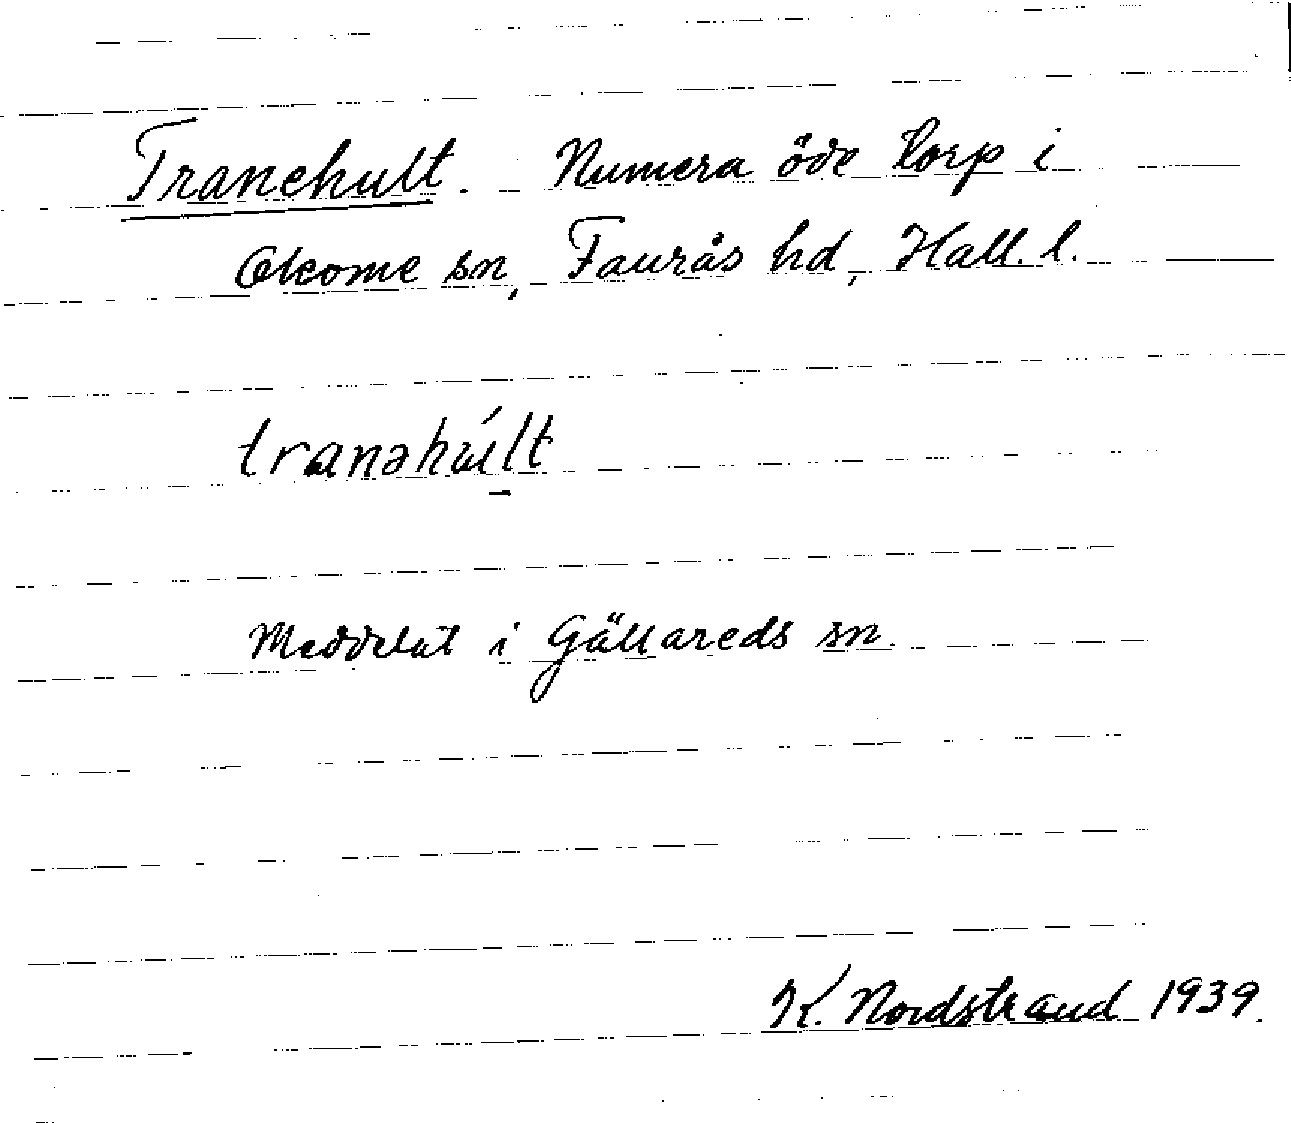 Tranehult. Numera öde torp i
Okome sn, Faurås hd, Hall. l.
tranəhúlt
Meddelat i Gällareds sn.
K. Nordstrand 1939.